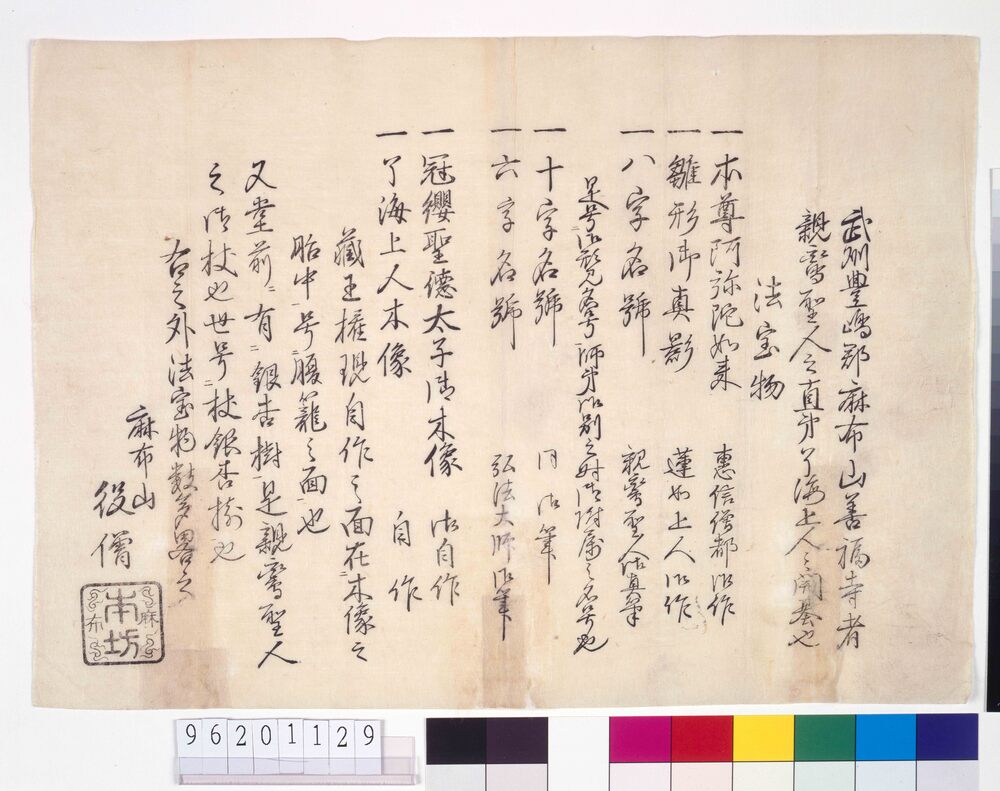 武州豊嶋郡麻布山善福寺者
親鸞聖人之直弟了海上人之開基也
法宝物
一 本尊阿弥陀如来 恵信僧都御作
一 雛形御真影 蓮如上人御作
一 八字名號 親鸞聖人御真筆
是号御形見名号師弟御別之时御附属之名号也
一 十字名號 同御筆
一 六字名號 弘法大師御筆
一 冠纓聖徳太子御木像 御自作
一 了海上人木像 自作
蔵王権現自作之面在木像之
胎中号腹籠之面也
又堂前ニ有銀杏樹是親鸞聖人
之御杖也世号ニ杖銀杏樹也
右之外法宝物数多畧之
麻布山
役僧
麻布
本坊
96201129